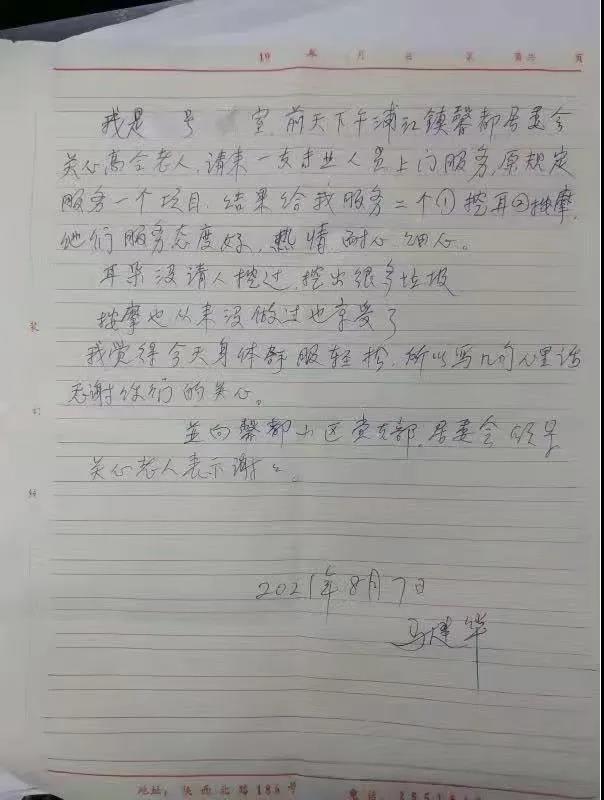 19 年 月 日 第 页
我是 号 室, 前天下午浦江镇馨都居委会
关心高令老人, 请来一支专业人员上门服务, 原规定
服务一个项目, 结果给我服务二个①挖耳②按摩,
他们服务态度好, 热情, 耐心细心。
耳朵没请人挖过, 挖出很多垃圾
按摩也从来没做过也享受了
我觉得今天身体舒服轻松, 所以写几句心里话
感谢你们的关心。
並向馨都小区党支部, 居委会领导
关心老人表示谢々。
2021年8月7日
马建华
装
订
线
地址: 陕西北路186号
电话: